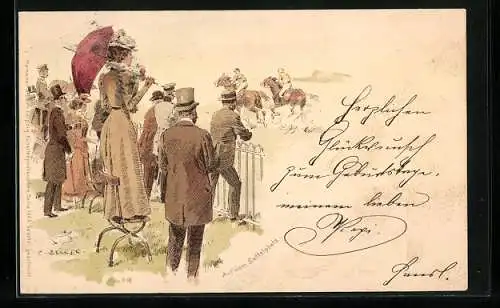 Herzlichen
Glückwunsch
zum Geburtstage,
meinem lieben
Pepi.
Hansl.
Auf dem Sattelplatz.